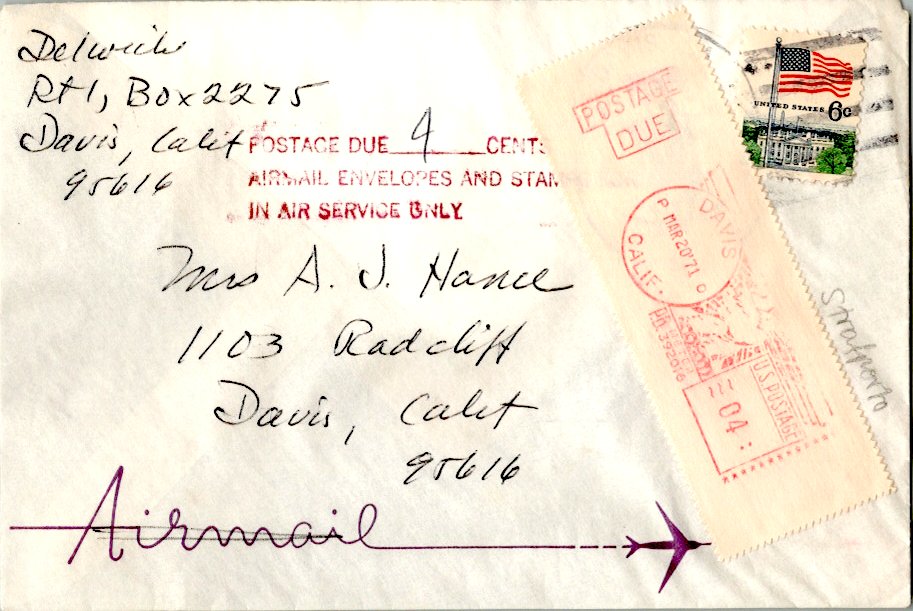 Delwiche
Rt 1, Box 2275
Davis, Calif
95616
POSTAGE DUE 4 CENTS
AIRMAIL ENVELOPES AND STAM
IN AIR SERVICE ONLY
POSTAGE
DUE
DAVIS
CALIF.
P MAR 20'71
UNITED STATES 6c
Mrs A. J. Hance
1103 Radcliff
Davis, Calif
95616
PB METER
392016
U.S. POSTAGE
04
Airmail